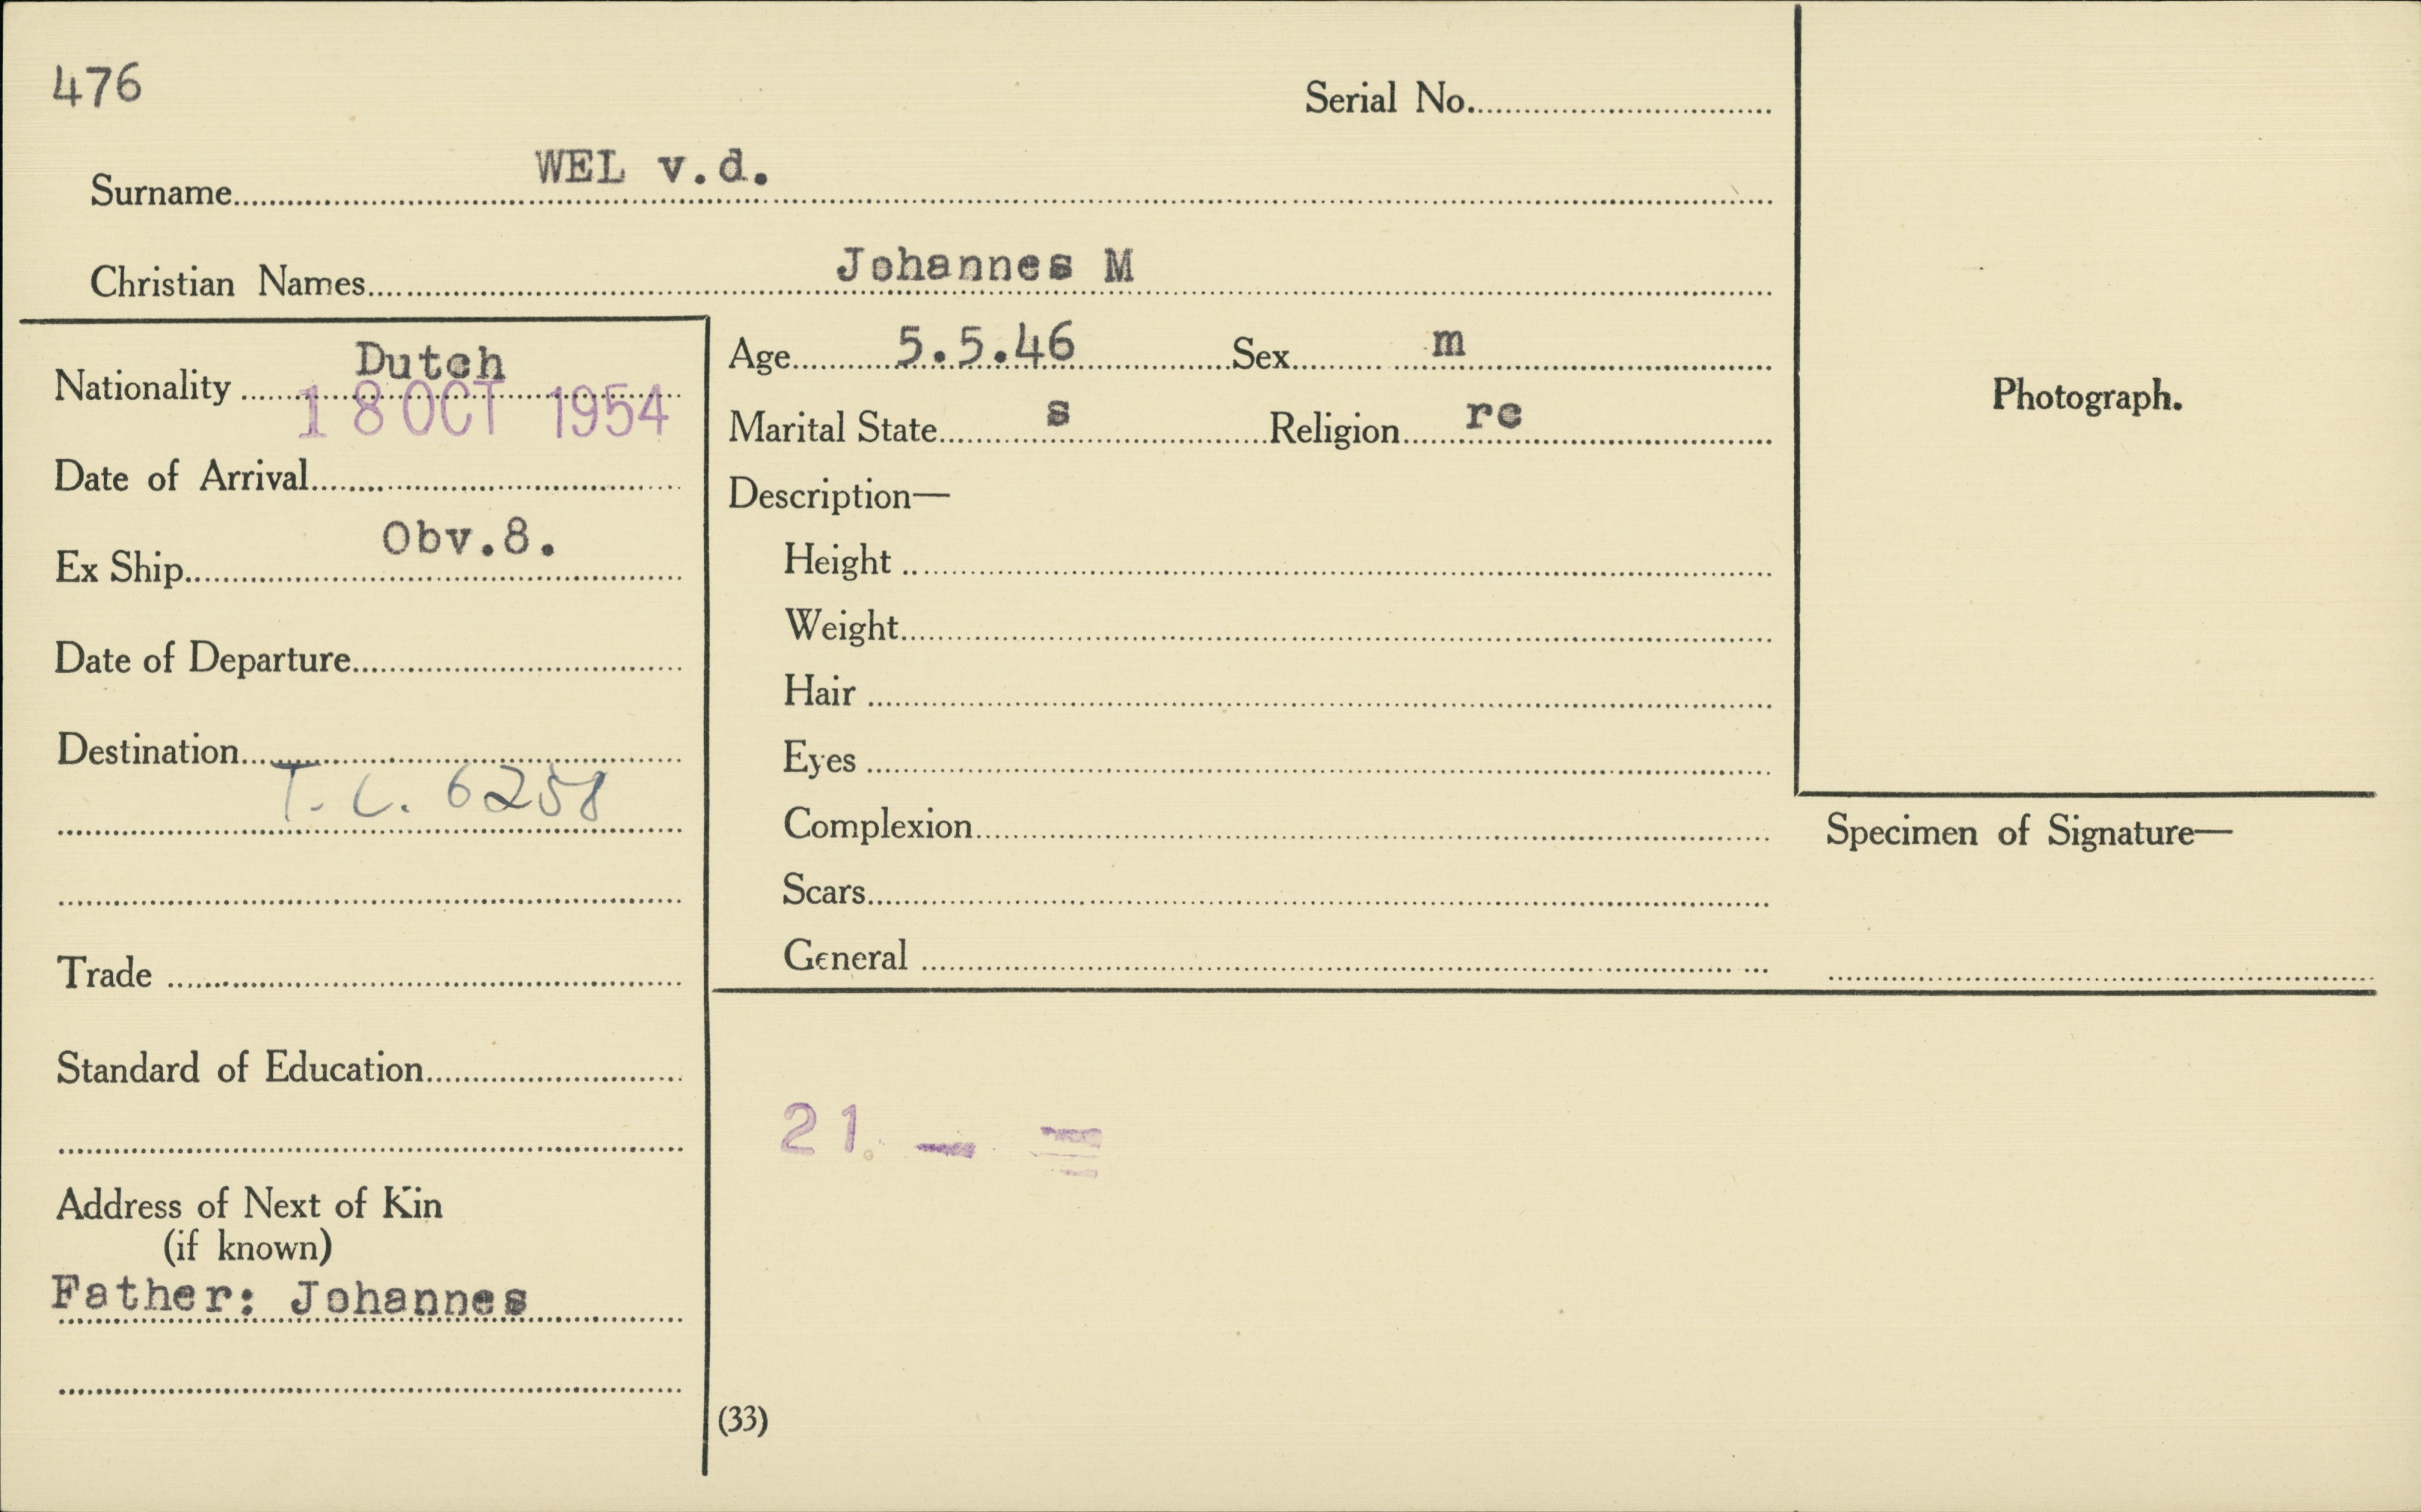 476
Serial No.
WEL v.d.
Surname
Johannes M
Christian Names
Dutch
Nationality
18 OCT 1954
Date of Arrival
Obv.8.
Ex Ship
Date of Departure
Destination
T. C. 6258
Trade
Standard of Education
Address of Next of Kin
(if known)
Father: Johannes
Age 5.5.46 Sex m
Marital State s Religion rc
Description—
Height
Weight
Hair
Eyes
Complexion
Scars
General
21.
(33)
Photograph.
Specimen of Signature—